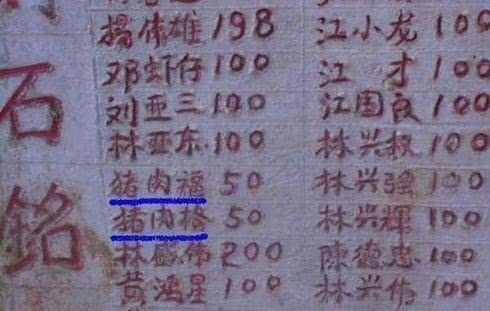 石
銘
揚伟雄 198 江小龙 100
邓虾仔 100 江 才 100
刘亚三 100 江国良 100
林亚东 100 林兴权 100
猪肉福 50 林兴强 100
猪肉格 50 林兴輝 100
林盛伟 200 陳德忠 100
黄鴻星 100 林兴伟 100